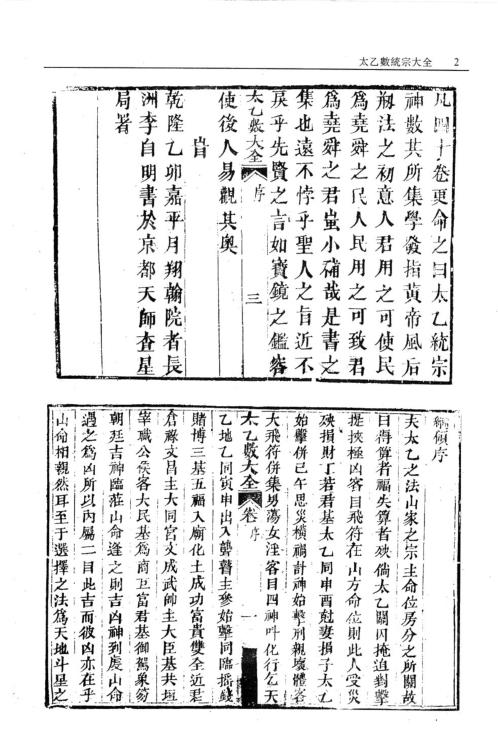 太乙數統宗大全 2
凡四十卷更命之曰太乙統宗
神數其所集學發指黃帝風后
剏法之初意人君用之可使民
爲堯舜之民人民用之可致君
爲堯舜之君蚩小補哉是書之
集也遠不悖乎聖人之旨近不
戾乎先賢之言如寶鏡之鑑容
太乙數大全 序 三
使後人易觀其奧
旹
乾隆乙卯嘉平月翔翰院者長
洲李自明書於京都天師查星
局署
綱領序
夫太乙之法山家之宗主命位房分之所關故
曰得算者福失算者殃倘太乙關囚掩迫對擊
提挾極凶客目飛符在山方命位則此人受災
殃損財丁若君基太乙同申酉尅妻損子太乙
始擊併巳午思災橫禍計神始擊刑親壞體客
大飛符併集男蕩女淫客目四神叶化行乞天
太乙數大全 卷 序 一
乙地乙同寅申出入聾瞽主參始擊同臨搖錢
賭博三基五福入廟化土成功富貴雙全近君
食祿文昌主大同宮文成武帥主大臣基共垣
宰職公侯客大民基爲商巨富君基御駕象笏
朝廷吉神臨莊山命逢之則吉凶神到虔山命
遇之爲凶所以内屬二目此吉而彼凶亦在乎
山命相親然耳至于選擇之法爲天地斗星之